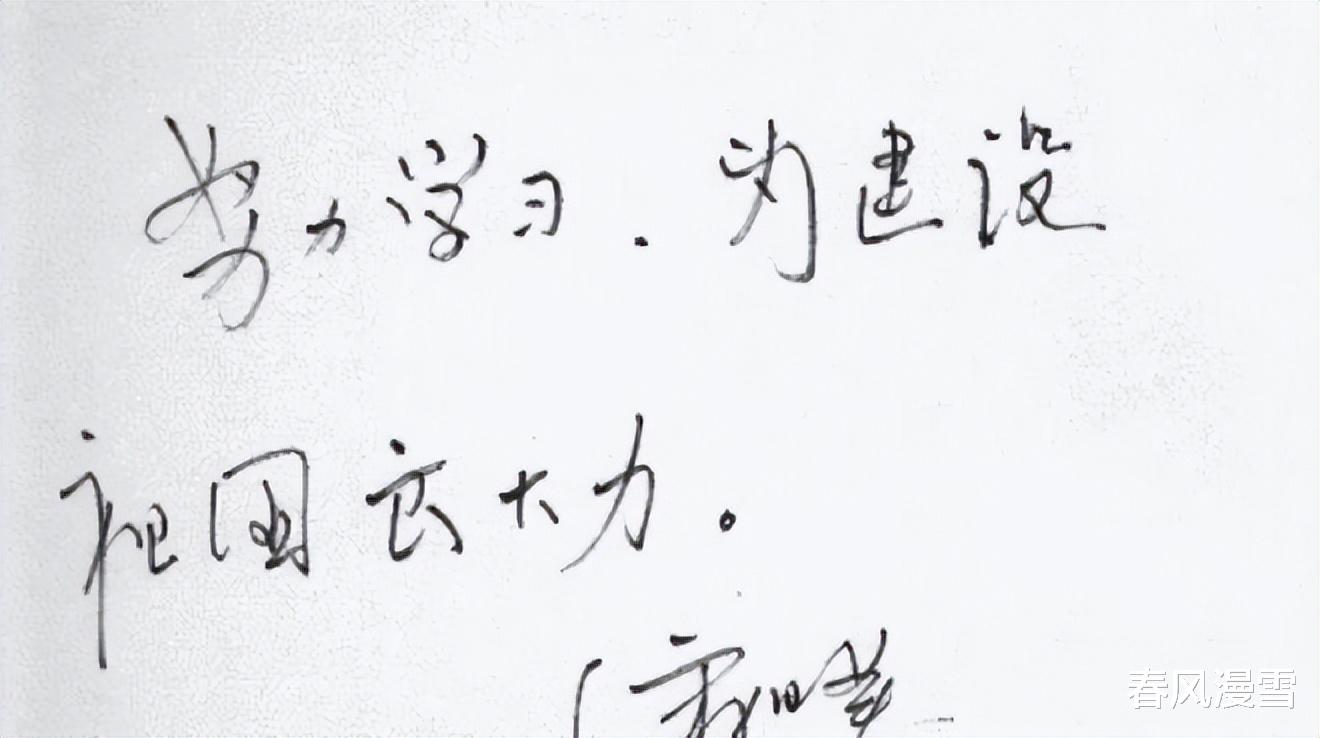 努力学习.为建设
祖国大力。
春风漫雪